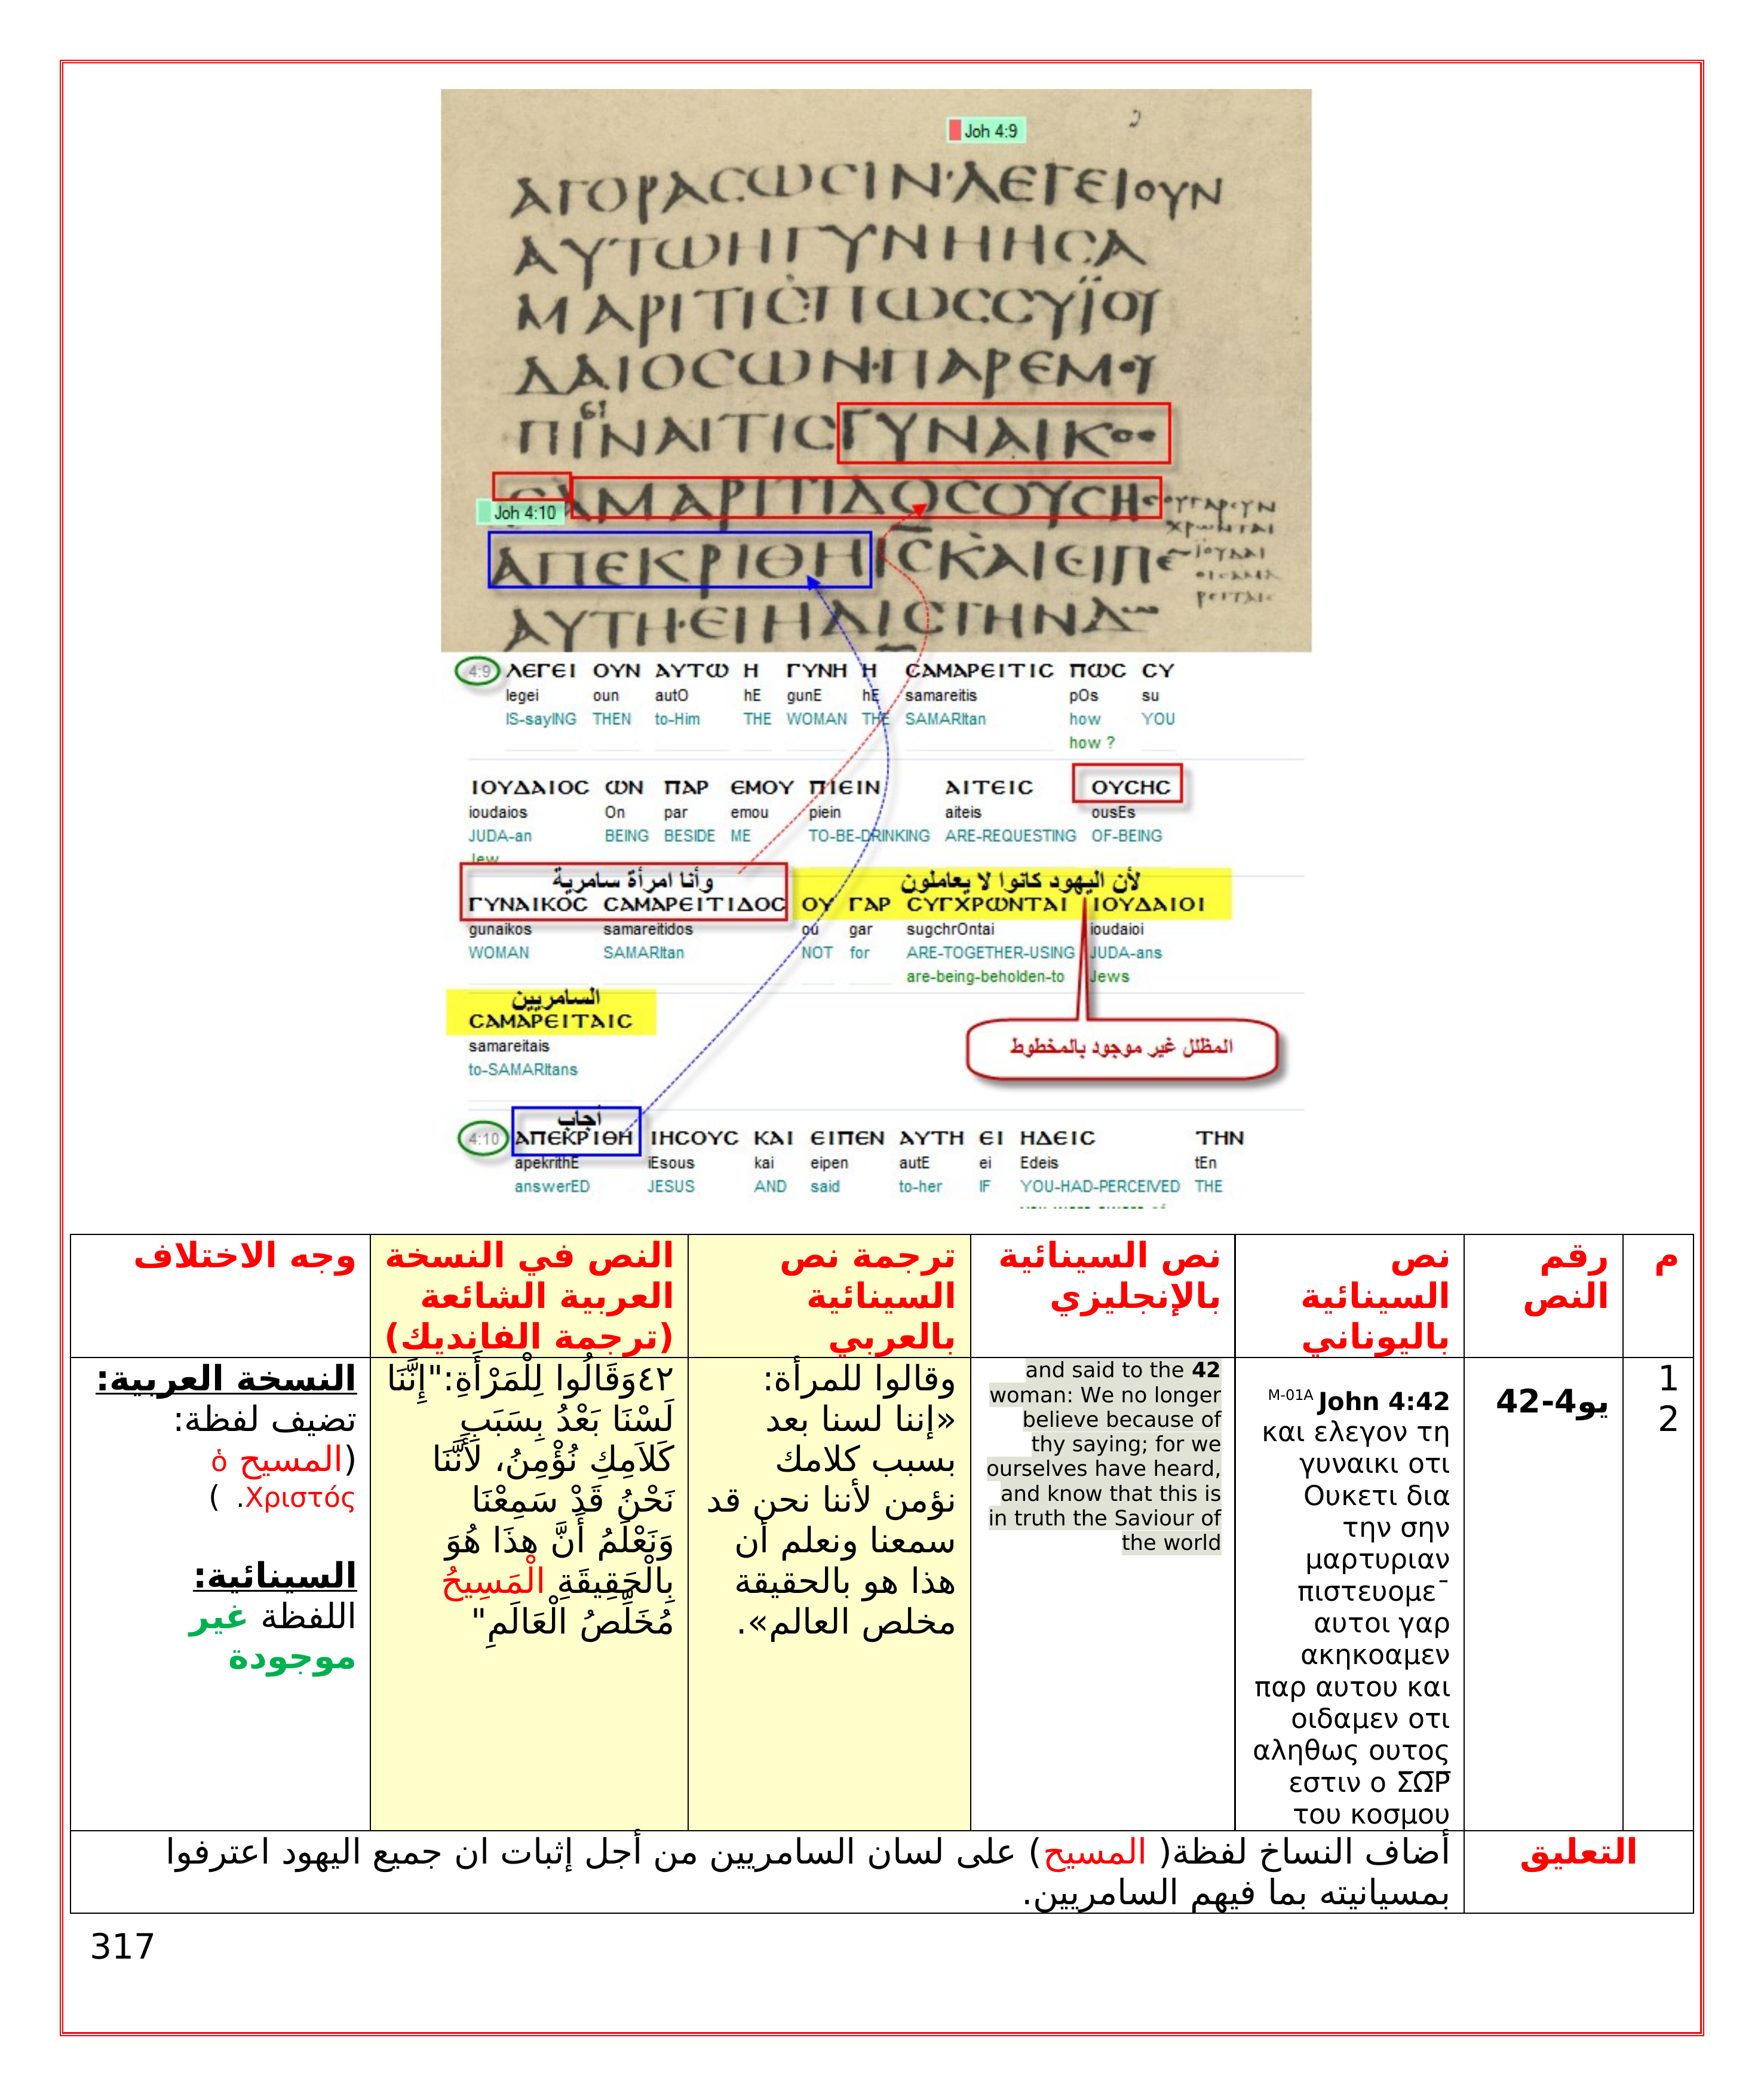 Joh 4:9
ΑΓΟΡΑCωCΙΝ·ΛΕΓΕΙΟΥΝ
ΑΥΤωΗΓΥΝΗΗCΑ
ΜΑΡΙΤΙC·ΠωCCΥΪΟΥ
ΔΑΙΟCωΝ·ΠΑΡΕΜΟΥ
ΠΙΝΑΙΤΙCΓΥΝΑΙΚΟC
CΑΜΑΡΙΤΙΔΟCΟΥCΗC
Joh 4:10
ΑΠΕΚΡΙΘΗΙCΚΑΙΕΙΠΕ
ΑΥΤΗ·ΕΙΗΔΙCΤΗΝΔω
ΟΥΓΑΡCΥΝ
ΧΡωΝΤΑΙ
ΙΟΥΔΑΙ
ΟΙCΑΜΑ
ΡΕΙΤΑΙC
4:9 ΛΕΓΕΙ ΟΥΝ ΑΥΤω Η ΓΥΝΗ Η CΑΜΑΡΕΙΤΙC ΠωC CΥ
legei oun autO hE gunE hE samareitis pOs su
IS-sayING THEN to-Him THE WOMAN THE SAMARItan how YOU
how ?
ΙΟΥΔΑΙΟC ωΝ ΠΑΡ ΕΜΟΥ ΠΙΕΙΝ ΑΙΤΕΙC ΟΥCΗC
ioudaios On par emou piein aiteis ousEs
JUDA-an BEING BESIDE ME TO-BE-DRINKING ARE-REQUESTING OF-BEING
Jew
وأنا امرأة سامرية لأن اليهود كانوا لا يعاملون
ΓΥΝΑΙΚΟC CΑΜΑΡΕΙΤΙΔΟC ΟΥ ΓΑΡ CΥΓΧΡωΝΤΑΙ ΙΟΥΔΑΙΟΙ
gunaikos samareitidos ou gar sugchrOntai ioudaioi
WOMAN SAMARItan NOT for ARE-TOGETHER-USING JUDA-ans
are-being-beholden-to Jews
السامريين
CΑΜΑΡΕΙΤΑΙC
samareitais
to-SAMARItans
المظلل غير موجود بالمخطوط
أجاب
4:10 ΑΠΕΚΡΙΘΗ ΙΗCΟΥC ΚΑΙ ΕΙΠΕΝ ΑΥΤΗ ΕΙ ΗΔΕΙC ΤΗΝ
apekrithE iEsous kai eipen autE ei Edeis tEn
answerED JESUS AND said to-her IF YOU-HAD-PERCEIVED THE
م
رقم
النص
نص
السينائية
باليوناني
نص السينائية
بالإنجليزي
ترجمة نص
السينائية
بالعربي
النص في النسخة
العربية الشائعة
(ترجمة الفانديك)
وجه الاختلاف
1
2
يو4-42
M-01A John 4:42
και ελεγον τη
γυναικι οτι
Ουκετι δια
την σην
μαρτυριαν
πιστευομε¯
αυτοι γαρ
ακηκοαμεν
παρ αυτου και
οιδαμεν οτι
αληθως ουτος
εστιν ο Σ̅Ω̅Ρ̅
του κοσμου
and said to the 42
woman: We no longer
believe because of
thy saying; for we
ourselves have heard,
and know that this is
in truth the Saviour of
the world
وقالوا للمرأة:
«إننا لسنا بعد
بسبب كلامك
نؤمن لأننا نحن قد
سمعنا ونعلم أن
هذا هو بالحقيقة
مخلص العالم».
٤٢وَقَالُوا لِلْمَرْأَةِ:"إِنَّنَا
لَسْنَا بَعْدُ بِسَبَبِ
كَلاَمِكِ نُؤْمِنُ، لأَنَّنَا
نَحْنُ قَدْ سَمِعْنَا
وَنَعْلَمُ أَنَّ هذَا هُوَ
بِالْحَقِيقَةِ الْمَسِيحُ
مُخَلِّصُ الْعَالَمِ"
النسخة العربية:
تضيف لفظة:
(المسيح ὁ
Χριστός. )
السينائية:
اللفظة غير
موجودة
التعليق
أضاف النساخ لفظة( المسيح) على لسان السامريين من أجل إثبات ان جميع اليهود اعترفوا
بمسيانيته بما فيهم السامريين.
317